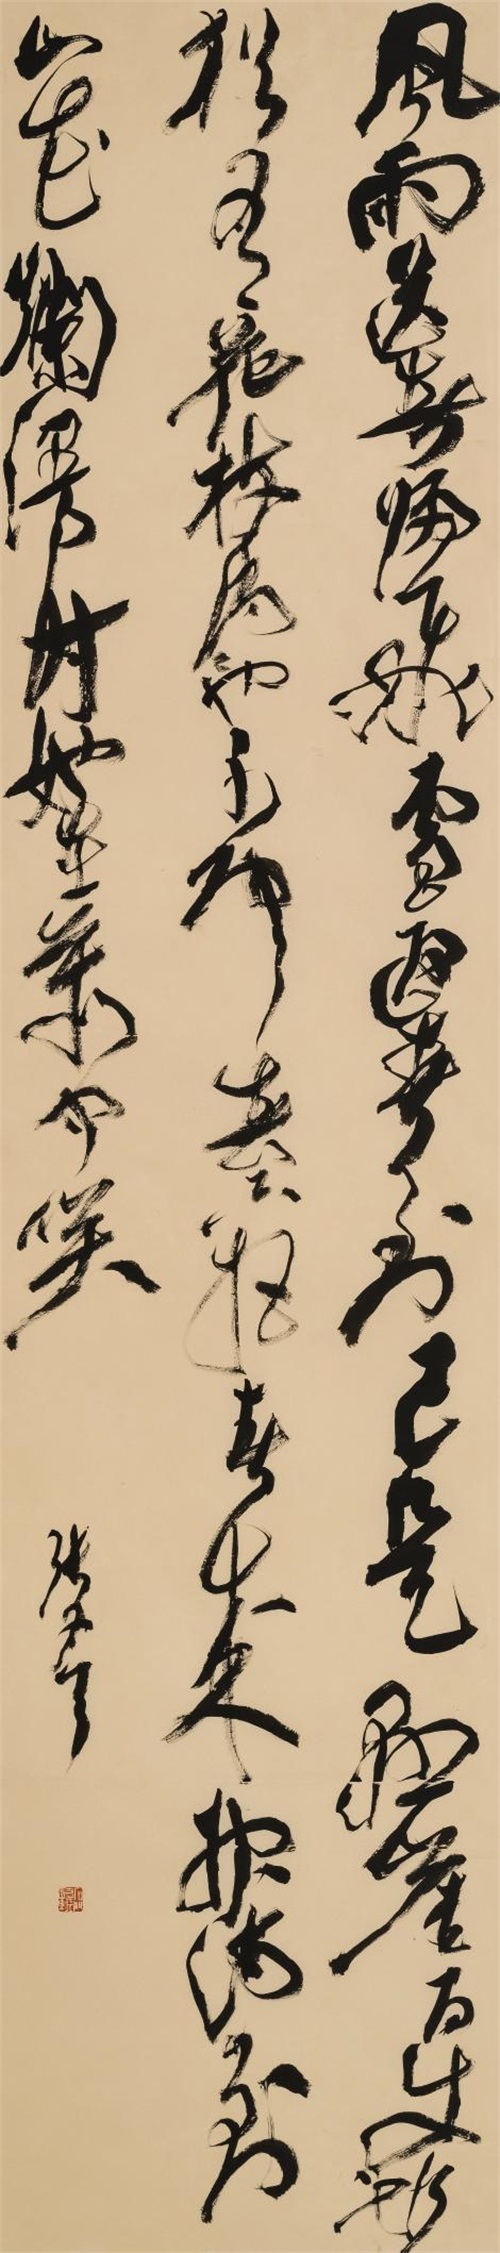 風雨送春歸飛雪迎春到已是懸崖百丈冰
猶有花枝俏也不爭春只把春來報待到
山花爛漫時她在叢中笑